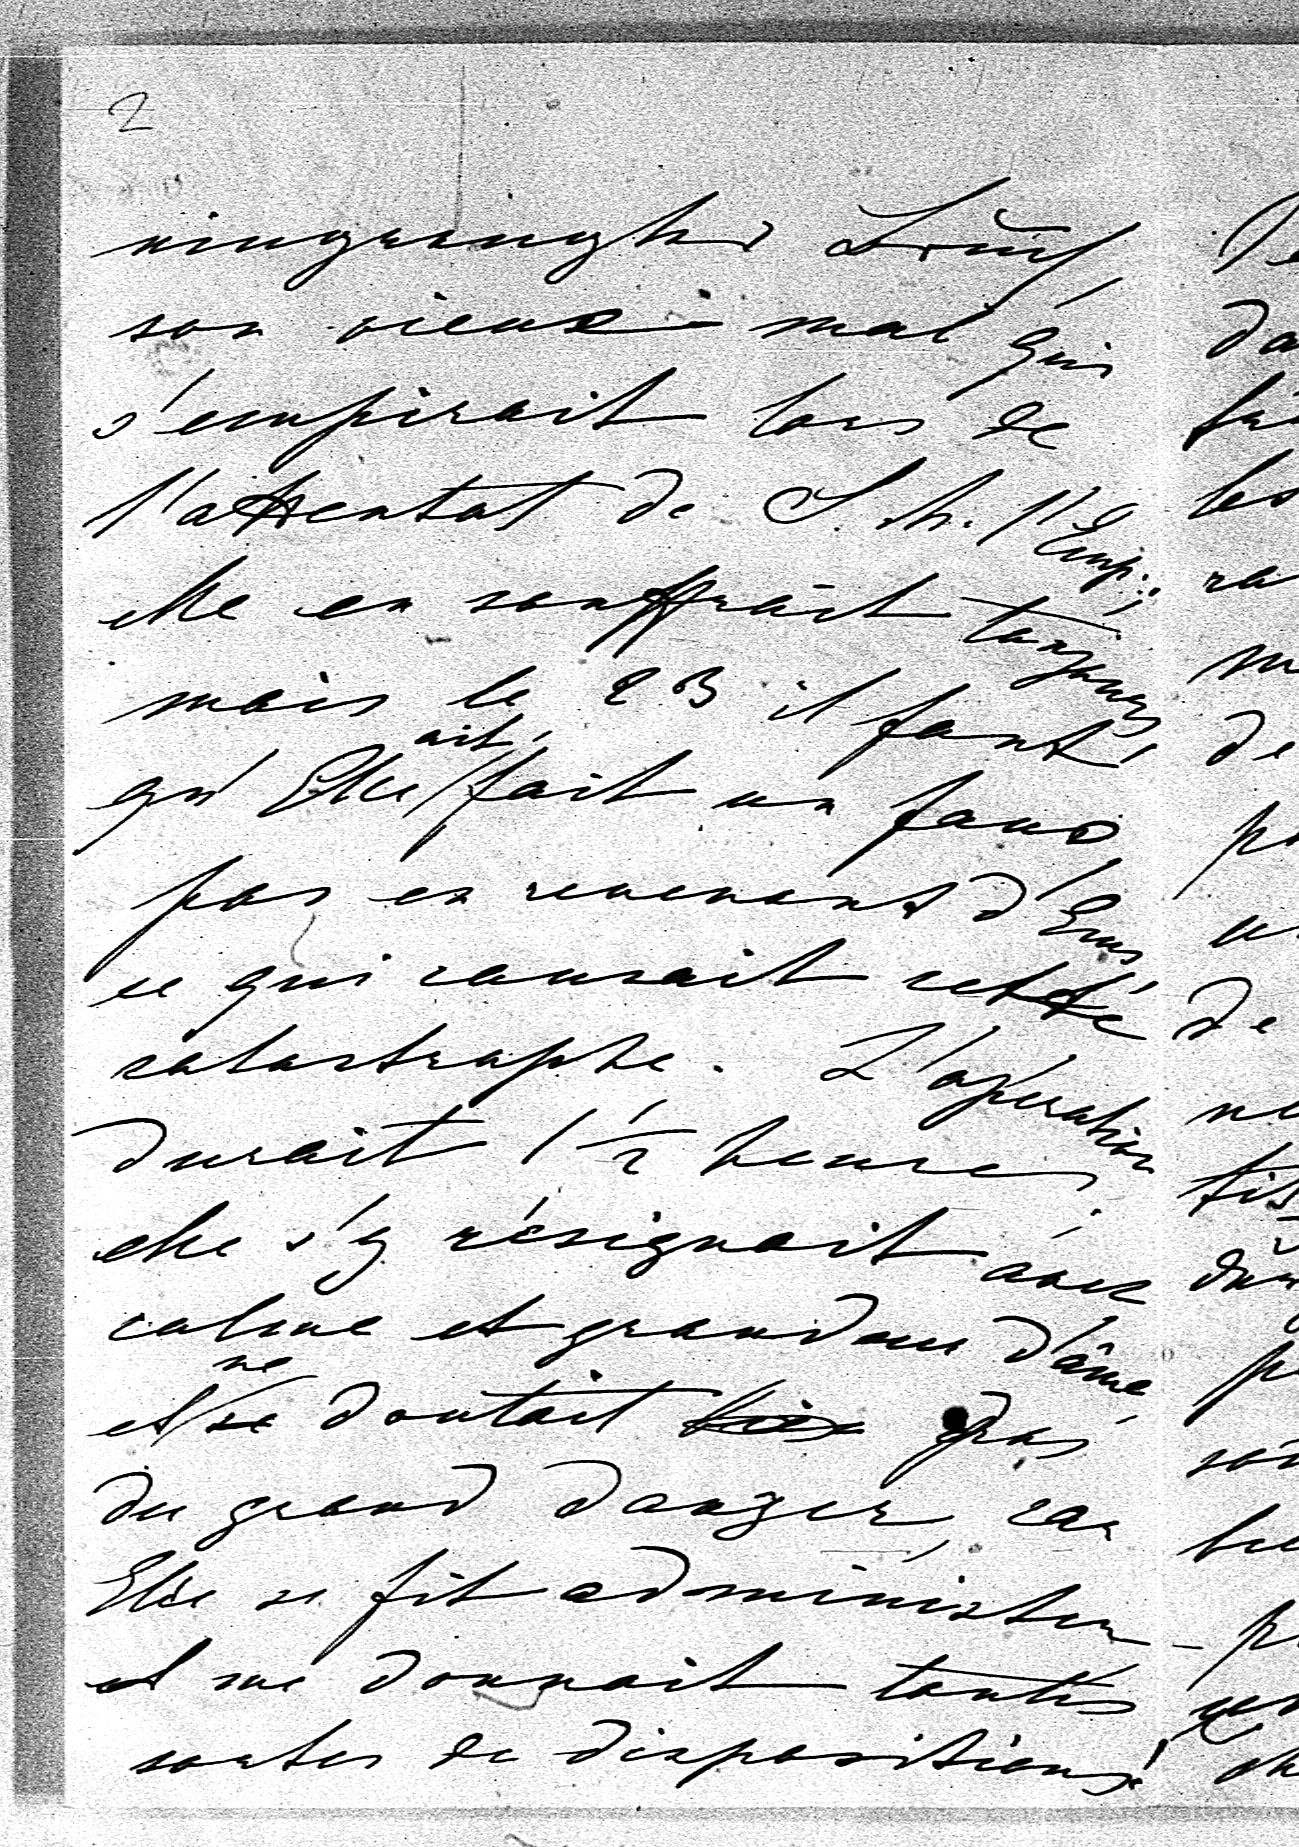 2
son vieux mal qui
s'empirait lors de
l'attentat de S. M. l'Emp.;
elle en souffrait toujours
mais le 23 il faut
qu'Elle ait fait un faux
pas en revenant d'Ems
ce qui causait cette
catastrophe. L'opération
durait 1 1/2 heures,
elle s'y résignait avec
calme et grandeur d'âme
et ne se doutait pas
du grand danger, car
Elle se fit administrer
et me donnait toutes
sortes de dispositions!